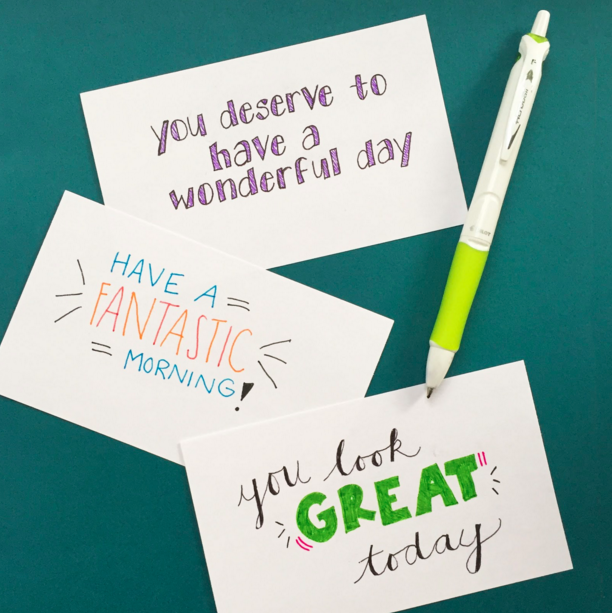 you deserve to
have a
wonderful day
HAVE A
FANTASTIC
MORNING!
you look
GREAT
today